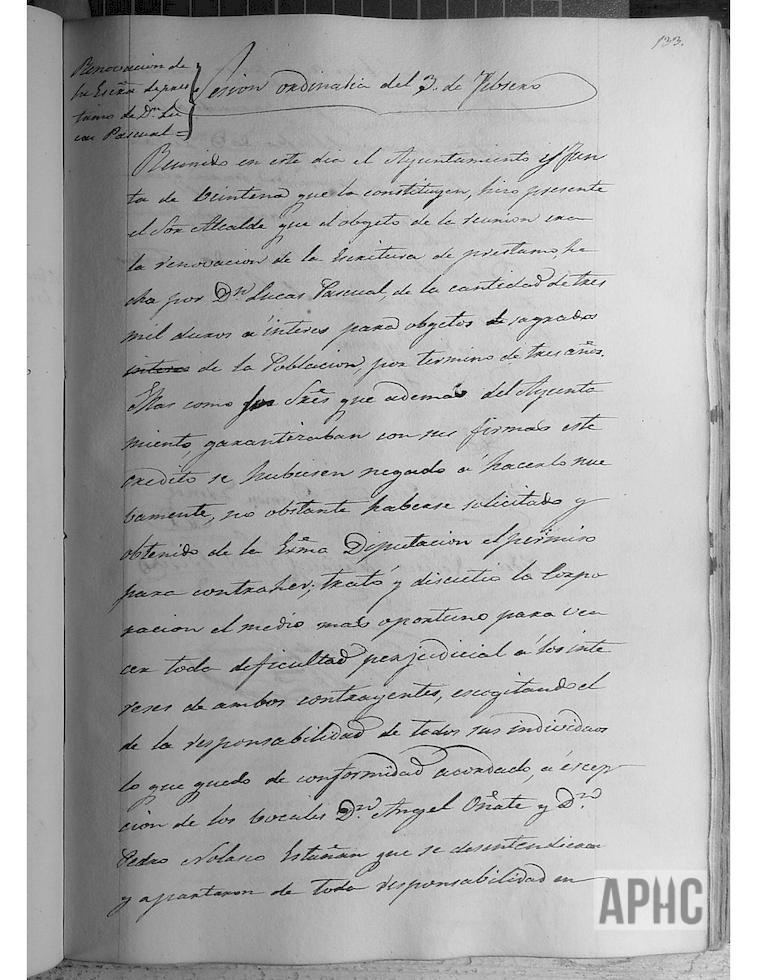 133.
Renovacion de
la Escrã. de pres
tamo de Dn. Lu
cas Pascual=
Sesion ordinaria del 3. de Febrero
Reunido en este dia el Ayuntamiento y Jun
ta de Veintena que la constituyen, hizo presente
el Sor Alcalde que el objeto de la reunion era
la renovacion de la Escritura de prestamo, he
cha por Dn. Lucas Pascual, de la cantidad de tres
mil duros a interes para objetos sagrados
interes de la Poblacion, por termino de tres años.
Mas como Sres que ademas del Ayunta
miento, garantizaban con sus firmas este
credito se hubiesen negado a hacerlo nue
bamente, no obstante haberse solicitado y
obtenido de la Exma Diputacion el permiso
para contraher; trató y discutio la Corpo
racion el medio mas oportuno para ven
cer toda deficultad perjudicial a los inte
reses de ambos contrayentes, escogitando el
de la responsabilidad de todos sus individuos
lo que quedo de conformidad acordado a escep
cion de los vocales Dn. Angel Oñate y Dn.
Pedro Nolasco Estañan que se desentendieron
y apartaron de toda responsabilidad en
APHC